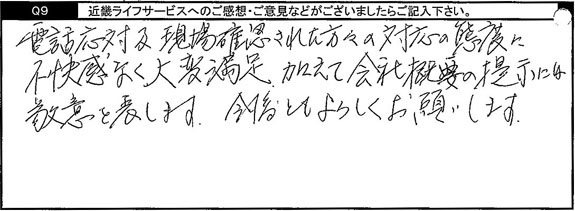 Q9 近畿ライフサービスへのご感想・ご意見などがございましたらご記入下さい。
電話応対及現場確認された方々の対応の態度に
不快感なく、大変満足、加えて会社概要の提示には
敬意を表します。今後ともよろしくお願いします。